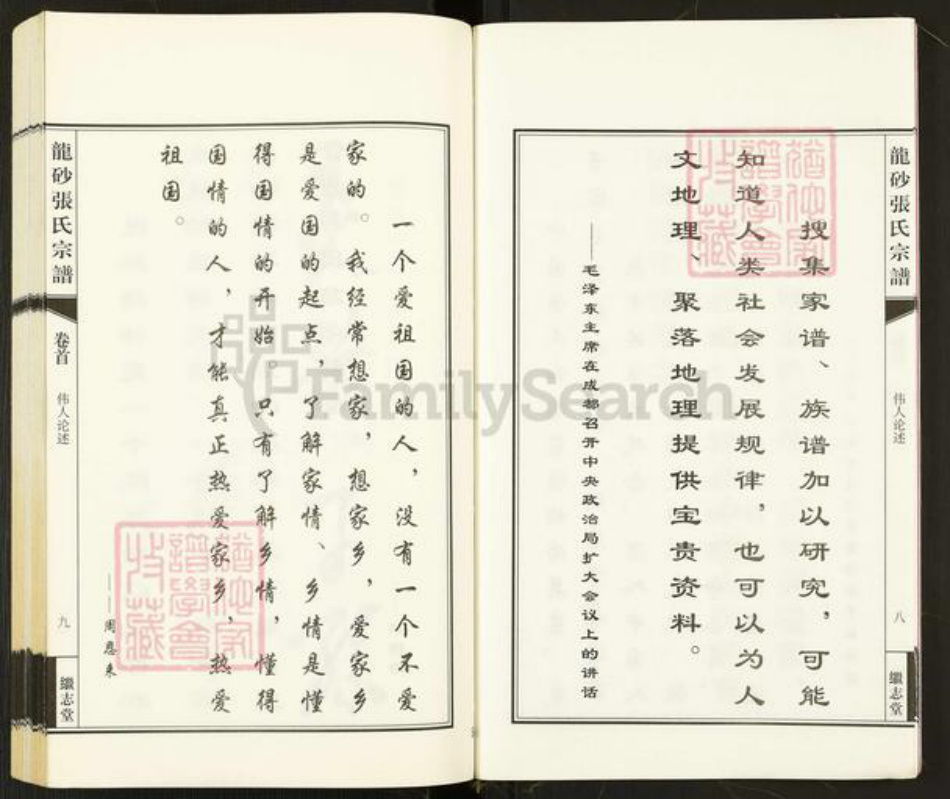 龍砂張氏宗譜
伟人论述
八
繼志堂
搜集家谱、族谱加以研究，可能
知道人类社会发展规律，也可以为人
文地理、聚落地理提供宝贵资料。
——毛泽东主席在成都召开中央政治局扩大会议上的讲话
一个爱祖国的人，没有一个不爱
家的。我经常想家，想家乡，爱家乡
是爱国的起点，了解家情、乡情是懂
得国情的开始。只有了解乡情，懂得
国情的人，才能真正热爱家乡，热爱
祖国。
——周恩来
龍砂張氏宗譜
卷首
伟人论述
九
繼志堂
FamilySearch